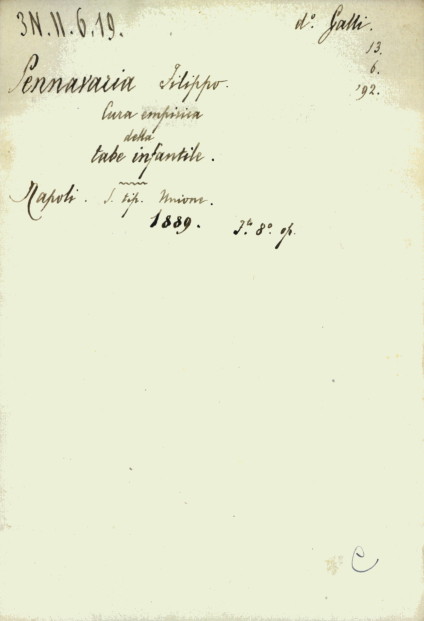 3N.II.6.19.
d°. Galli.
13.
6.
'92.
Pennavaria Filippo.
Cura empirica
della
tabe infantile.
Napoli. S. tip. Unione.
1889. Iⁿ 8°. op.
C